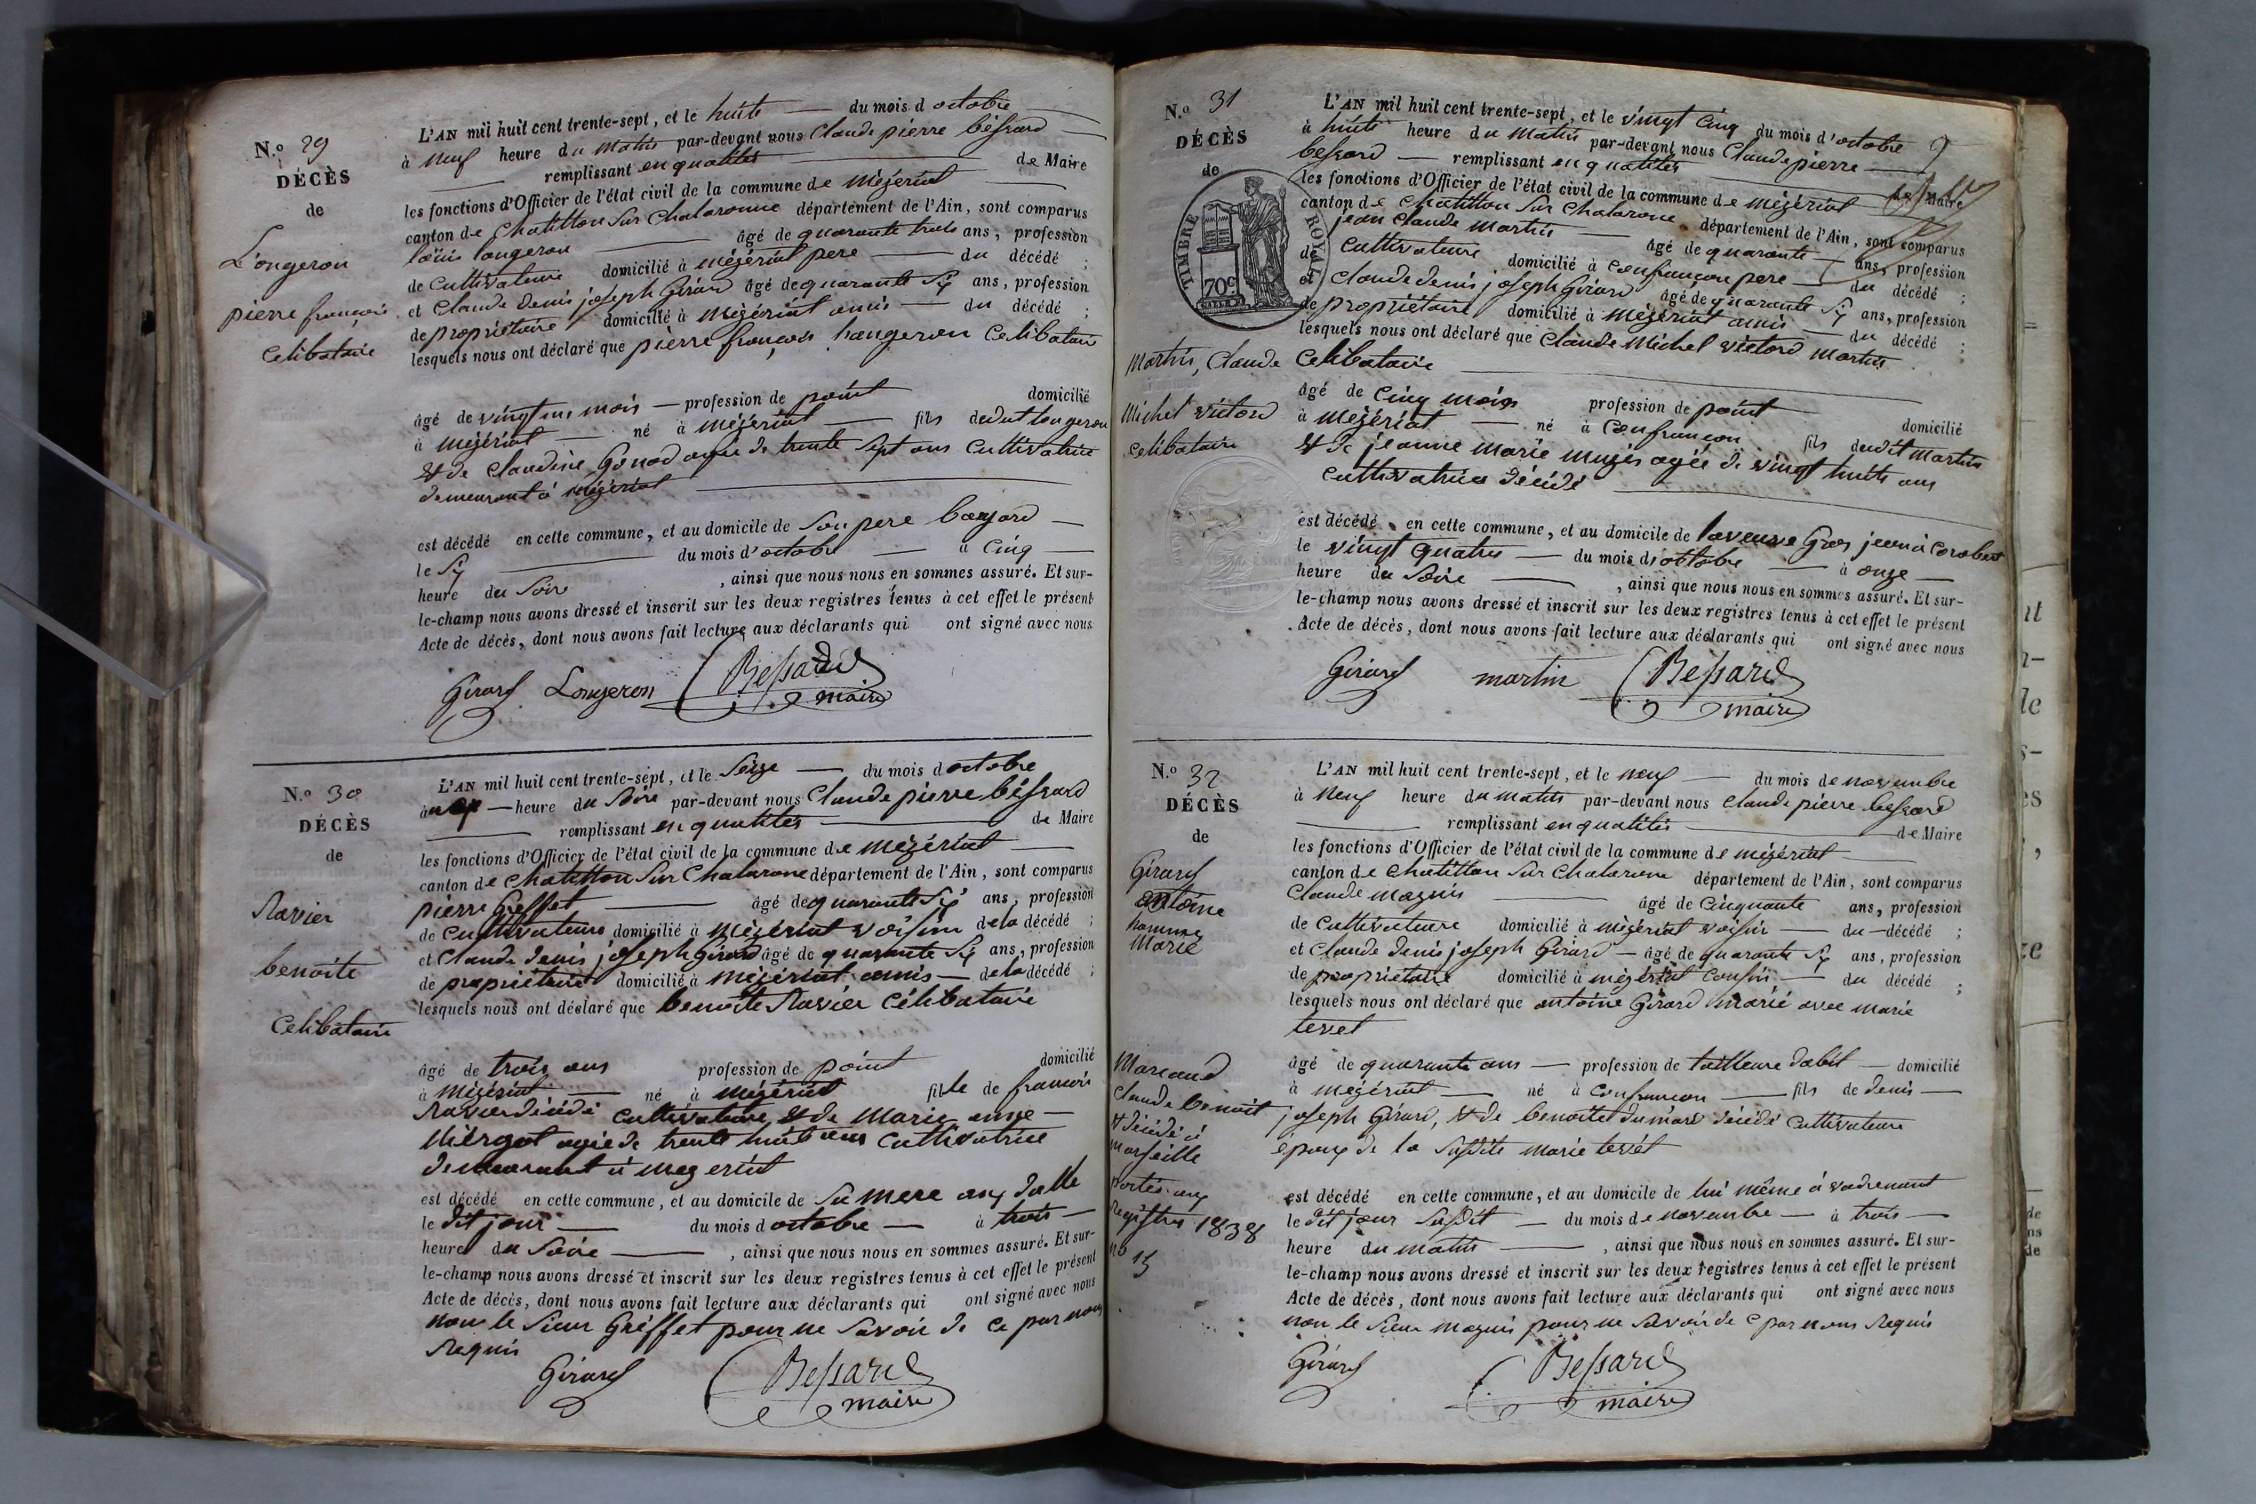 N.o 29
DÉCÈS
de
Longeron
pierre françois
Celibataire
L'AN mil huit cent trente-sept, et le huite du mois d octobre
à neuf heure du matin par-devant nous Claude pierre béssard
remplissant en qualités de Maire
les fonctions d'Officier de l'état civil de la commune de mézériat
canton de Chatillon Sur Chalaronne département de l'Ain, sont comparus
loüis longeron âgé de quarante trois ans, profession
de Cultivateure domicilié à mézériat pere du décédé ;
et Claude denis joseph Girard âgé de quarante Six ans, profession
de propriétaire domicilié à mézériat amis du décédé ;
lesquels nous ont déclaré que pierre françois longeron Celibataire
âgé de vingt un mois profession de point domicilié
à mézériat né à mézériat fils dudit longeron
& de claudine Gonod agée de trente Sept ans Cultivatrice
demeurant à mézériat
est décédé en cette commune, et au domicile de Son pere
le Six du mois d'octobre à cinq
heure du Soire , ainsi que nous nous en sommes assuré. Et sur-
le-champ nous avons dressé et inscrit sur les deux registres tenus à cet effet le présent
Acte de décès, dont nous avons fait lecture aux déclarants qui ont signé avec nous
Girard Longeron Bessard
maire
N.o 30
DÉCÈS
de
Ravier
benoite
Celibataire
L'AN mil huit cent trente-sept, et le Seize du mois d octobre
à heure du Soire par-devant nous Claude pierre béssard
remplissant en qualités de Maire
les fonctions d'Officier de l'état civil de la commune de mézériat
canton de Chatillon Sur Chalarone département de l'Ain, sont comparus
pierre Greffet âgé de quarante Six ans, profession
de Cultivateure domicilié à mézériat voisin de la décédé ;
et Claude denis joseph Girard âgé de quarante Six ans, profession
de propriétaire domicilié à mézériat amis de la décédé ;
lesquels nous ont déclaré que benoite Ravier Célibataire
âgé de trois ans profession de point domicilié
à mézériat né à mézériat fille de francois
Ravier décédé cultivateure, & de Marie
agée de trente huit ans Cultivatrice
demeurant à mezeriat
est décédé en cette commune, et au domicile de Sa mere
le dit jour du mois d octobre à trois
heure du Soire , ainsi que nous nous en sommes assuré. Et sur-
le-champ nous avons dressé et inscrit sur les deux registres tenus à cet effet le présent
Acte de décès, dont nous avons fait lecture aux déclarants qui ont signé avec nous
non le Sieur Gréffet pour ne Savoir de ce par nous
Requis
Girard Bessard
maire
N.o 31
DÉCÈS
de
TIMBRE ROYAL
70c
Martin, Claude
Michel victord
celibataire
L'AN mil huit cent trente-sept, et le vingt Cinq du mois d'octobre
à huite heure du matin par-devant nous Claude pierre
bessard remplissant en qualités de Maire
les fonctions d'Officier de l'état civil de la commune de mézériat
canton de Chatillon Sur Chalarone département de l'Ain, sont comparus
jean Claude Martin âgé de quarante ans, profession
de Cultivateure domicilié à Confrançon pere du décédé ;
et Claude denis joseph Girard âgé de quarante Six ans, profession
de propriétaire domicilié à mézériat amis du décédé ;
lesquels nous ont déclaré que Claude Michel victord Martin
Celibataire
âgé de Cinq mois profession de point domicilié
à mézériat né à Confrançon fils dudit martin
& de jeanne marie agée de vingt huite ans
Cultivatrice décédé
est décédé en cette commune, et au domicile de la veuve Gras jean à
le vingt quatre du mois d'octobre à onze
heure du Soire , ainsi que nous nous en sommes assuré. Et sur-
le-champ nous avons dressé et inscrit sur les deux registres tenus à cet effet le présent
Acte de décès, dont nous avons fait lecture aux déclarants qui ont signé avec nous
Girard martin Bessard
maire
N.o 32
DÉCÈS
de
Girard
antoine
homme
Marié
Marcaud
Claude benoit
& décédé à
marseille
portés aux
Registres 1838
no 15
L'AN mil huit cent trente-sept, et le neuf du mois de novembre
à Neuf heure du matin par-devant nous Claude pierre bessard
remplissant en qualités de Maire
les fonctions d'Officier de l'état civil de la commune de mézériat
canton de Chatillon Sur Chalarone département de l'Ain, sont comparus
Claude maznis âgé de Cinquante ans, profession
de Cultivateure domicilié à mézériat voisin du décédé ;
et Claude denis joseph Girard âgé de quarante Six ans, profession
de propriétaire domicilié à mézériat Cousin du décédé ;
lesquels nous ont déclaré que antoine Girard marié avec marie
tevet
âgé de quarante ans profession de tailleure dabit domicilié
à mézériat né à Confrançon fils de denis
joseph Girard, & de benoite décédé Cultivateure
époux de la Susdite marie tevét
est décédé en cette commune, et au domicile de lui même à vadrenant
le dit jour Susdit du mois de novembre à trois
heure du matin , ainsi que nous nous en sommes assuré. Et sur-
le-champ nous avons dressé et inscrit sur les deux registres tenus à cet effet le présent
Acte de décès, dont nous avons fait lecture aux déclarants qui ont signé avec nous
non le Sieur maznis pour ne Savoir de ce par nous Requis
Girard Bessard
maire